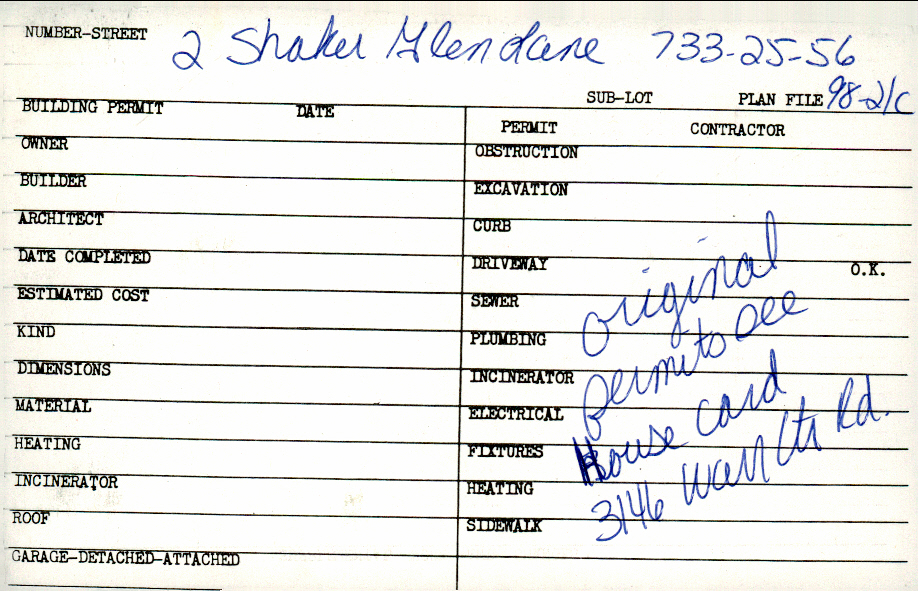 NUMBER-STREET 2 Shaker Glen Lane 733-25-56
SUB-LOT PLAN FILE 98-21C
BUILDING PERMIT DATE
OWNER
BUILDER
ARCHITECT
DATE COMPLETED
ESTIMATED COST
KIND
DIMENSIONS
MATERIAL
HEATING
INCINERATOR
ROOF
GARAGE-DETACHED-ATTACHED
PERMIT CONTRACTOR
OBSTRUCTION
EXCAVATION
CURB
DRIVEWAY O.K.
SEWER
PLUMBING
INCINERATOR
ELECTRICAL
FIXTURES
HEATING
SIDEWALK
original
permits see
House card
3146 Warr Ctr Rd.